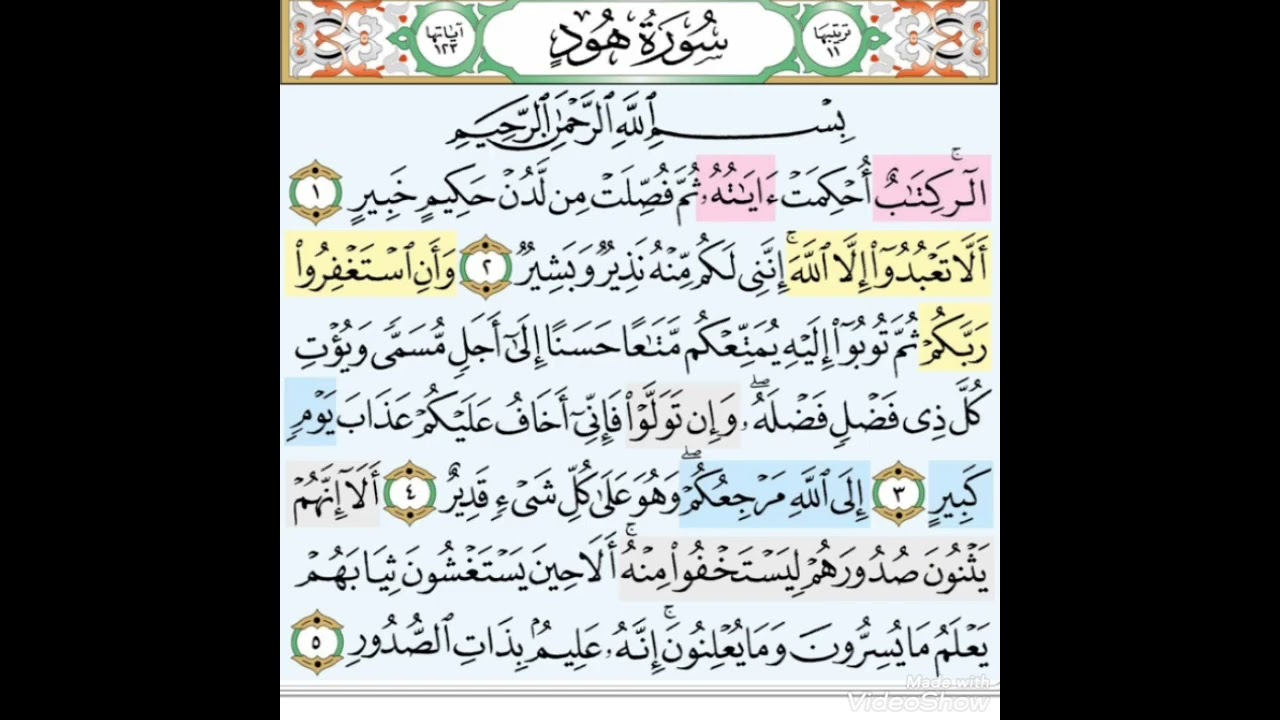 ترتيبها ١١
سُورَةُ هُودٍ
آياتها ١٢٣
بِسْمِ ٱللَّهِ ٱلرَّحْمَٰنِ ٱلرَّحِيمِ
الٓر ۚ كِتَٰبٌ أُحْكِمَتْ ءَايَٰتُهُۥ ثُمَّ فُصِّلَتْ مِن لَّدُنْ حَكِيمٍ خَبِيرٍ ١
أَلَّا تَعْبُدُوٓا۟ إِلَّا ٱللَّهَ ۚ إِنَّنِى لَكُم مِّنْهُ نَذِيرٌ وَبَشِيرٌ ٢ وَأَنِ ٱسْتَغْفِرُوا۟
رَبَّكُمْ ثُمَّ تُوبُوٓا۟ إِلَيْهِ يُمَتِّعْكُم مَّتَٰعًا حَسَنًا إِلَىٰٓ أَجَلٍ مُّسَمًّى وَيُؤْتِ
كُلَّ ذِى فَضْلٍ فَضْلَهُۥ ۖ وَإِن تَوَلَّوْا۟ فَإِنِّىٓ أَخَافُ عَلَيْكُمْ عَذَابَ يَوْمٍ
كَبِيرٍ ٣ إِلَى ٱللَّهِ مَرْجِعُكُمْ ۖ وَهُوَ عَلَىٰ كُلِّ شَىْءٍ قَدِيرٌ ٤ أَلَآ إِنَّهُمْ
يَثْنُونَ صُدُورَهُمْ لِيَسْتَخْفُوا۟ مِنْهُ ۚ أَلَا حِينَ يَسْتَغْشُونَ ثِيَابَهُمْ
يَعْلَمُ مَا يُسِرُّونَ وَمَا يُعْلِنُونَ ۚ إِنَّهُۥ عَلِيمٌۢ بِذَاتِ ٱلصُّدُورِ ٥
Made with
VideoShow